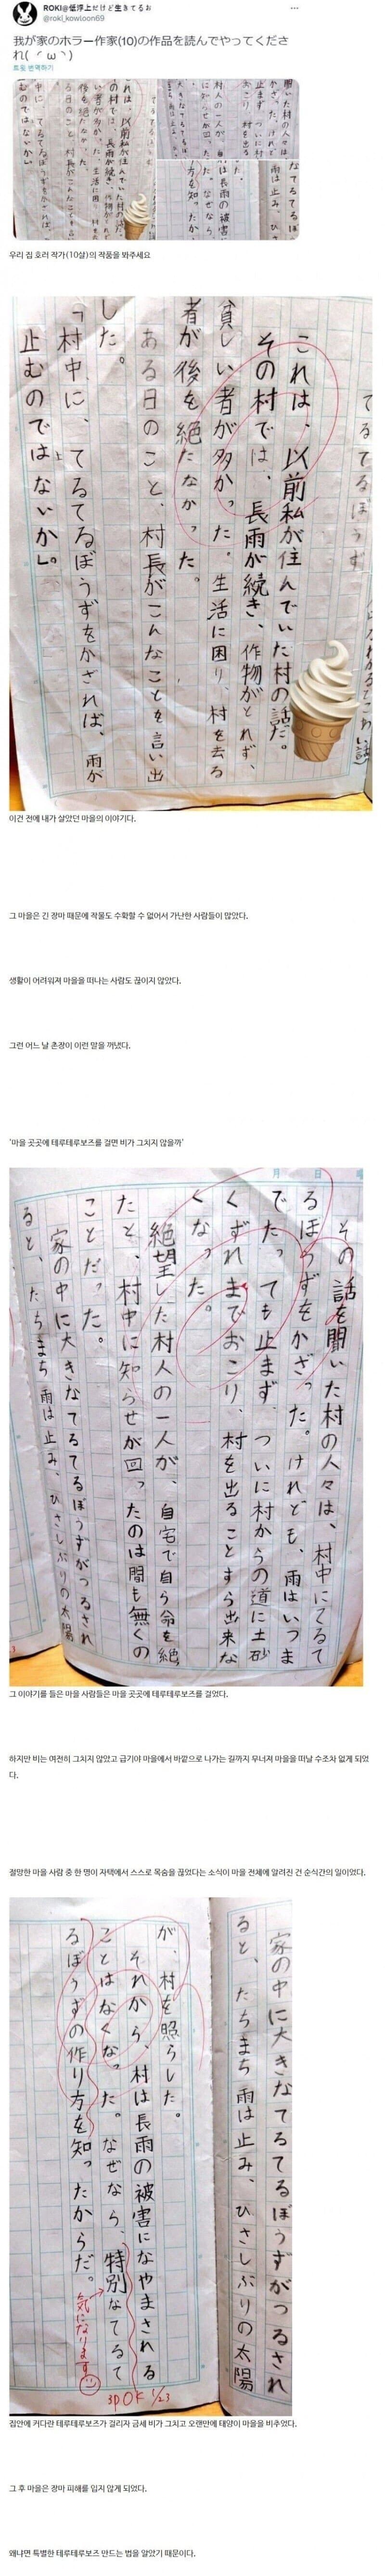 ROKI@低浮上だけど生きてるお
@roki_kowloon69
我が家のホラー作家(10)の作品を読んでやってくださ
れ( ´ω`)
트윗 번역하기
우리 집 호러 작가(10살)의 작품을 봐주세요
これは、以前私が住んでいた村の話だ。
その村では、長雨が続き、作物がとれず、
貧しい者が多かった。生活に困り、村を去る
者が後を絶たなかった。
ある日のこと、村長がこんなことを言い出
した。
「村中に、てるてるぼうずをかざれば、雨が
止むのではないか」。
이건 전에 내가 살았던 마을의 이야기다.
그 마을은 긴 장마 때문에 작물도 수확할 수 없어서 가난한 사람들이 많았다.
생활이 어려워져 마을을 떠나는 사람도 끊이지 않았다.
그런 어느 날 촌장이 이런 말을 꺼냈다.
'마을 곳곳에 테루테루보즈를 걸면 비가 그치지 않을까'
月 日
その話を聞いた村の人々は、村中にてるて
るぼうずをかざった。けれども、雨はいつま
でたっても止まず、ついに村からの道に土砂
くずれまでおこり、村を出ることすら出来な
くなった。
絶望した村人の一人が、自宅で自ら命を絶っ
たと、村中に知らせが回ったのは間も無くの
ことだった。
家の中に大きなてるてるぼうずがつるされ
ると、たちまち雨は止み、ひさしぶりの太陽
그 이야기를 들은 마을 사람들은 마을 곳곳에 테루테루보즈를 걸었다.
하지만 비는 여전히 그치지 않았고 급기야 마을에서 바깥으로 나가는 길까지 무너져 마을을 떠날 수조차 없게 되었
다.
절망한 마을 사람 중 한 명이 자택에서 스스로 목숨을 끊었다는 소식이 마을 전체에 알려진 건 순식간의 일이었다.
家の中に大きなてるてるぼうずがつるされ
ると、たちまち雨は止み、ひさしぶりの太陽
が、村を照らした。
それから、村は長雨の被害になやまされる
ことはなくなった。なぜなら、特別なてるて
るぼうずの作り方を知ったからだ。
気になります
3p OK 1/23
집안에 커다란 테루테루보즈가 걸리자 금세 비가 그치고 오랜만에 태양이 마을을 비추었다.
그 후 마을은 장마 피해를 입지 않게 되었다.
왜냐면 특별한 테루테루보즈 만드는 법을 알았기 때문이다.